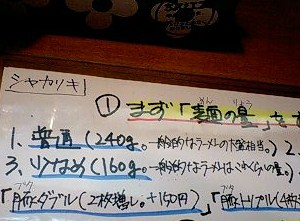 シャカリキ!
① まず「麺の量」を
めん りょう
1、普通(240g。一般的なラーメンの大盛相当。) 2
3、少なめ(160g。一般的なラーメンはこれくらいの量。)
ブタ ブタ
「豚ダブル(2枚増し。+150円)」「豚トリプル(4枚